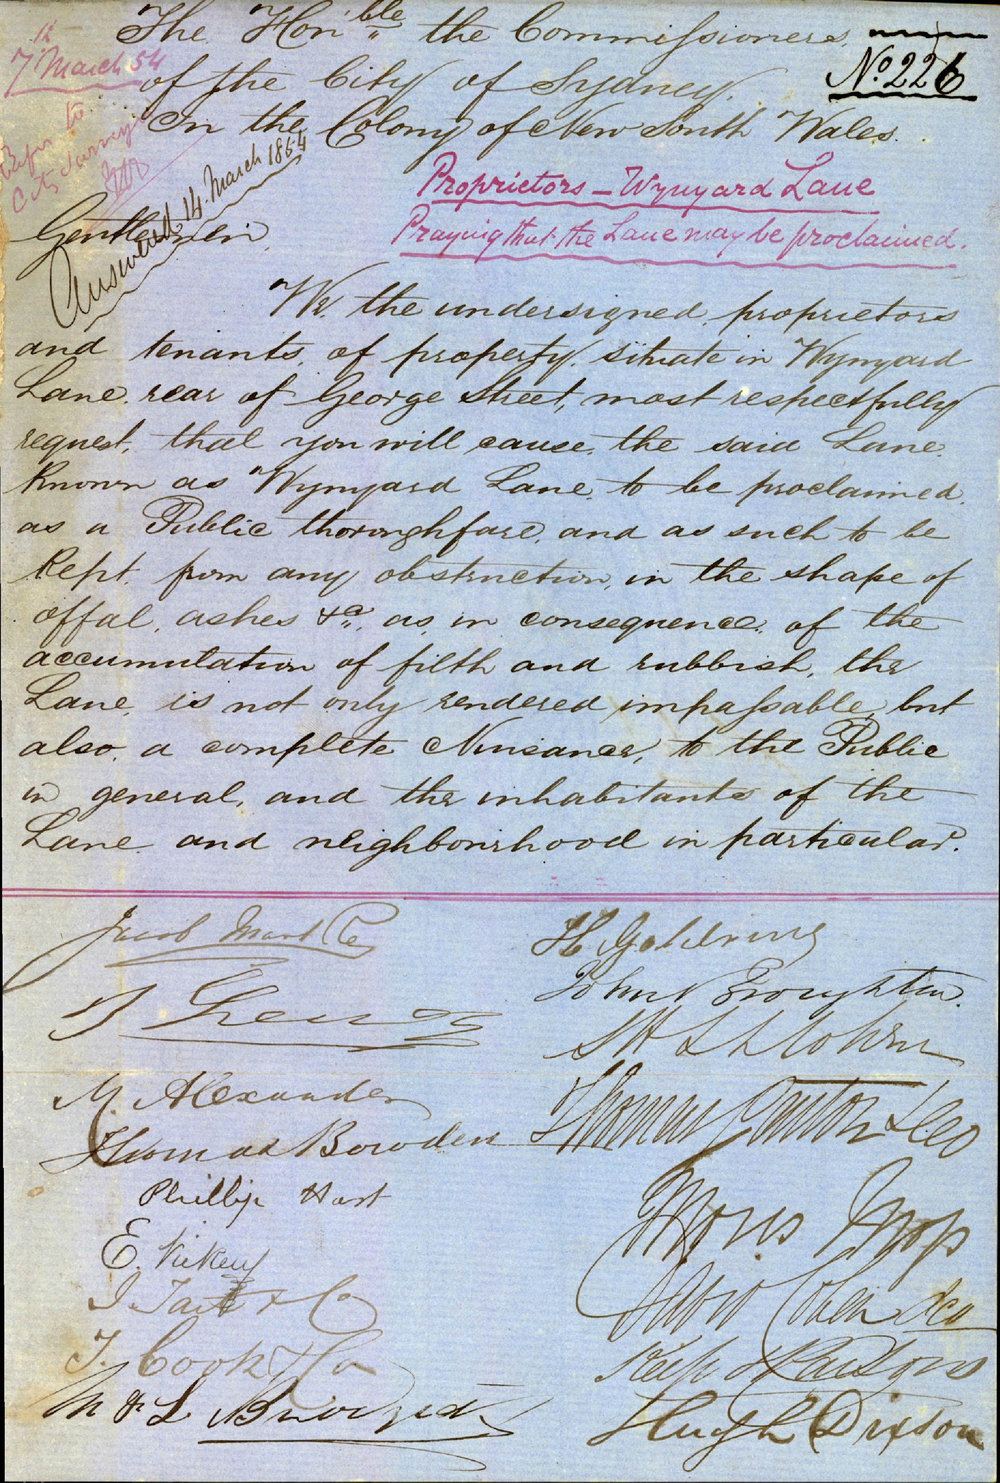 The Hon'ble the Commissioners
No. 226
7th March 54
of the City of Sydney.
In the Colony of New South Wales.
Refer to
City Surveyor
Proprietors – Wynyard Lane
Praying that the Lane may be proclaimed.
Gentlemen
Answered 14 March 1854
We the undersigned, proprietors
and tenants, of property, situate in Wynyard
Lane, rear of George Street, most respectfully
request, that you will cause, the said Lane
Known as Wynyard Lane, to be proclaimed,
as a Public thoroughfare, and as such to be
Kept, from any obstruction, in the shape of
offal, ashes &a, as, in consequence, of the
accumulation of filth and rubbish, the
Lane, is not only rendered impassable, but
also, a complete Nuisance, to the Public
in general, and the inhabitants of the
Lane and neighbourhood in particular.
Jacob Mart Co
H Goldring
John Broughton.
M. Alexander
Thomas Bowden
Thomas &Co
Phillip Hart
Moris
E. Vickery
J. Tait & Co
Cohen &Co
T. Cook & Co
& Parsons
M & L
Hugh Dixson